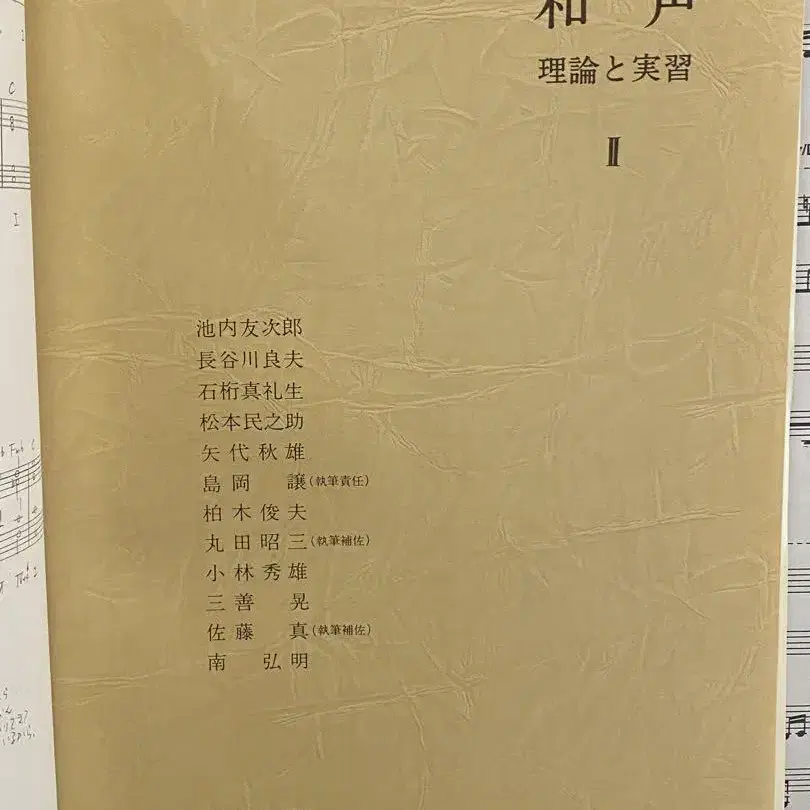 和声
理論と実習
II
池内友次郎
長谷川良夫
石桁真礼生
松本民之助
矢代秋雄
島岡 譲(執筆責任)
柏木俊夫
丸田昭三(執筆補佐)
小林秀雄
三善 晃
佐藤 真(執筆補佐)
南 弘明